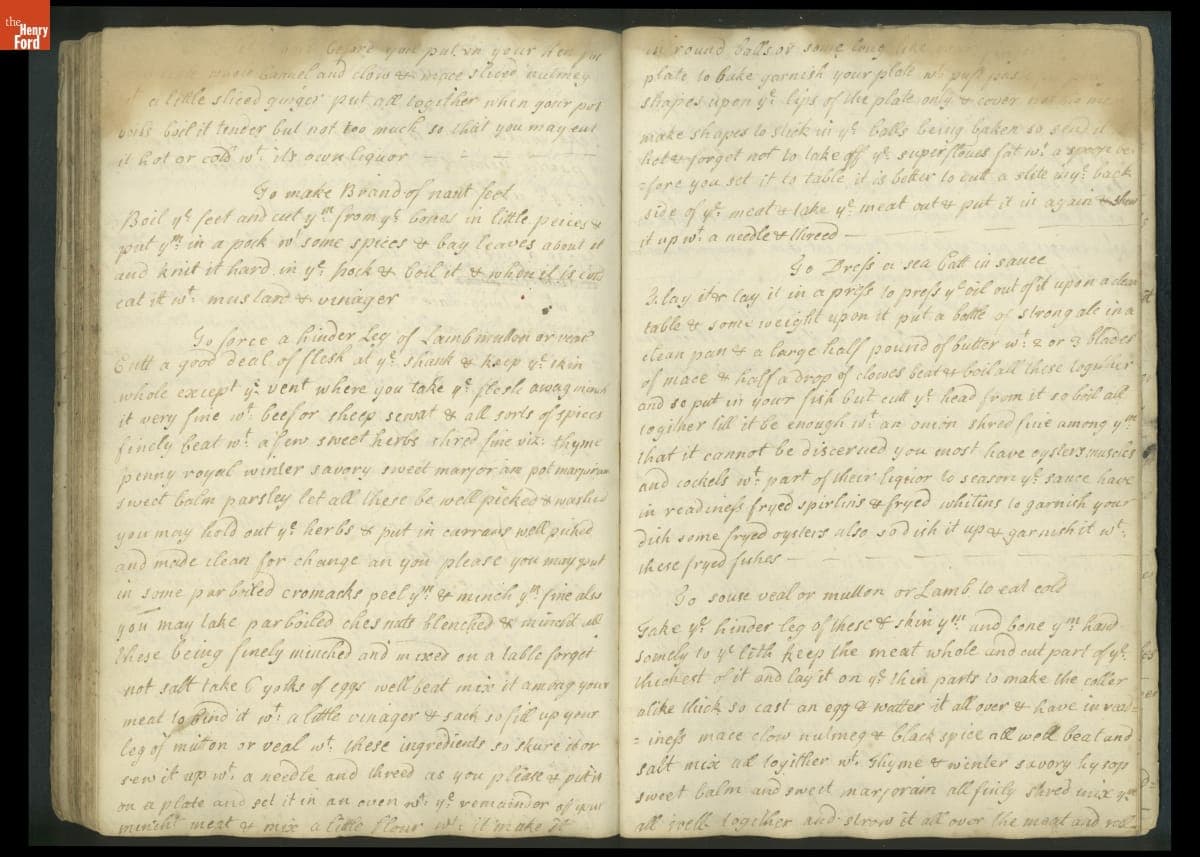 the
Henry
Ford
before you put in your hen put
and clow & mace sliced nutmeg
a little sliced ginger put all together when your pot
boils boil it tender but not too much so that you may eat
it hot or cold wt. its own liquor
To make Brand of nant feet
Boil ye feet and cut ym from ye bones in little peices &
put ym in a pock wt some spices & bay leaves about it
and knit it hard in ye pock & boil it & when it is cold
eat it wt. mustard & vinager
To force a hinder Leg of Lamb mutton or veal
Cutt a good deal of flesh at ye shank & keep ye skin
whole except ye vent where you take ye flesh away minch
it very fine wt. beef or sheep sewat & all sorts of spices
finely beat wt. a few sweet herbs shred fine viz: thyme
penny royal winter savory sweet marjoram pot marjoram
sweet balm parsley let all these be well picked & washed
you may hold out ye herbs & put in currans well picked
and made clean for change an you please you may put
in some parboiled cromacks peel ym & minch ym fine also
you may take parboiled chesnats blenched & minch'd all
these being finely minched and mixed on a table forget
not salt take 6 yolks of eggs well beat mix it among your
meat to bind it wt. a little vinager & sack so fill up your
leg of mutton or veal wt. these ingredients so skure it or
sew it up wt. a needle and threed as you please & put it
on a plate and set it in an oven wt. ye remainder of your
mincht meat & mix a little flour wt. it make it
in round balls or some long like
plate to bake garnish your plate wt. puff
shapes upon ye lips of the plate only & cover not
make shapes to stick in ye balls being baken so send it
hot & forget not to take off ye superflous fat wt. a spoon be-
=fore you set it to table it is better to cutt a slite in ye back
side of ye meat & take ye meat out & put it in again & shew
it up wt. a needle & threed
To Dress a sea Catt in sauce
Flay it & lay it in a press to press ye oil out of it upon a clean
table & some weight upon it put a botle of strong ale in a
clean pan & a large half pound of butter wt. 2 or 3 blades
of mace & half a drop of clowes beat & boil all these together
and so put in your fish but cutt ye head from it so boil all
together till it be enough wt. an onion shred fine among ym
that it cannot be discerned you most have oysters muscles
and cockels wt. part of their liquor to season ye sauce have
in readiness fryed spirlins & fryed whitins to garnish your
dish some fryed oysters also so dish it up & garnish it wt.
these fryed fishes
To souse veal or mutton or Lamb to eat cold
Take ye hinder leg of these & skin ym and bone ym hand
somely to ye lith keep the meat whole and cut part of ye
thickest of it and lay it on ye thin parts to make the coller
alike thick so cast an egg & watter it all over & have in read=
=iness mace clow nutmeg & black spice all well beat and
salt mix all together wt. thyme & winter savory hysop
sweet balm and sweet marjorain all finly shred mix ym
all well together and strow it all over the meat and roll